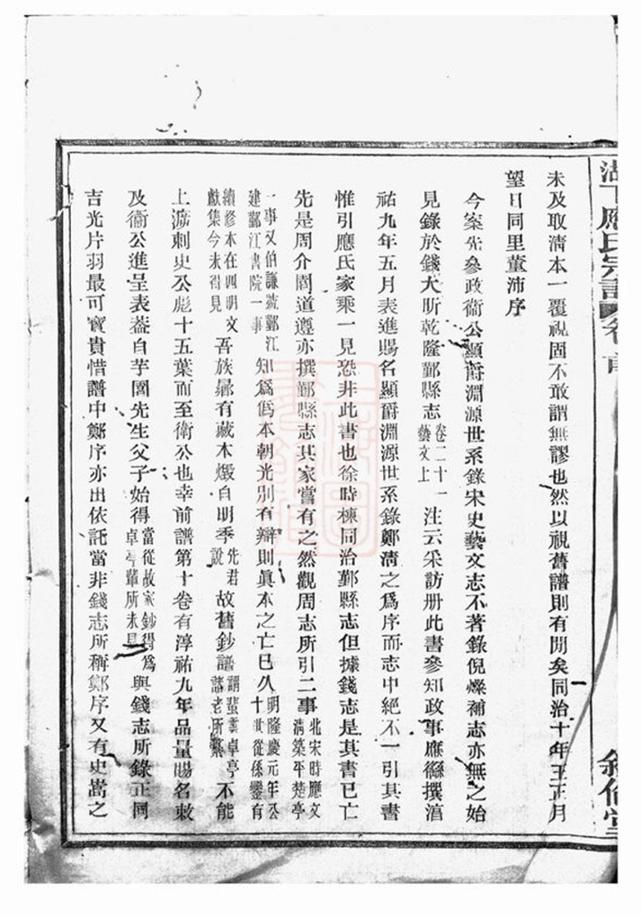 未及取清本一覆視固不敢謂無謬也然以視舊譜則有間矣同治十年王正月
望日同里董沛序
今案先參政衞公顯爵淵源世系錄宋史藝文志不著錄倪燦補志亦無之始
見錄於錢大昕乾隆鄞縣志卷二十一藝文上注云采訪册此書參知政事應㒡撰淳
祐九年五月表進賜名顯爵淵源世系錄鄭淸之爲序而志中絕不一引其書
惟引應氏家乘一見恐非此書也徐時棟同治鄞縣志但據錢志是其書已亡
先是周介園道遵亦撰鄞縣志其家當有之然觀周志所引二事北宋時應文清築平楚亭
一事又伯謙號鄞江建鄞江書院一事知爲僞本朝光別有辯則眞本之亡已久明隆慶元年公十世從孫鑾有
續修本在四明文獻集今未得見吾族鼻有藏本燬自明季先君說故舊鈔譜謂蜚雲卓亭諸老所纂不能
上溯刺史公彪十五葉而至衞公也幸前譜第十卷有淳祐九年品量賜名敕
及衞公進呈表葢自芋園先生父子始得當從故家鈔得爲卓亭輩所未見與錢志所錄正同
吉光片羽最可寶貴惜譜中鄭序亦出依託當非錢志所稱鄭序又有史嵩之
應氏宗譜